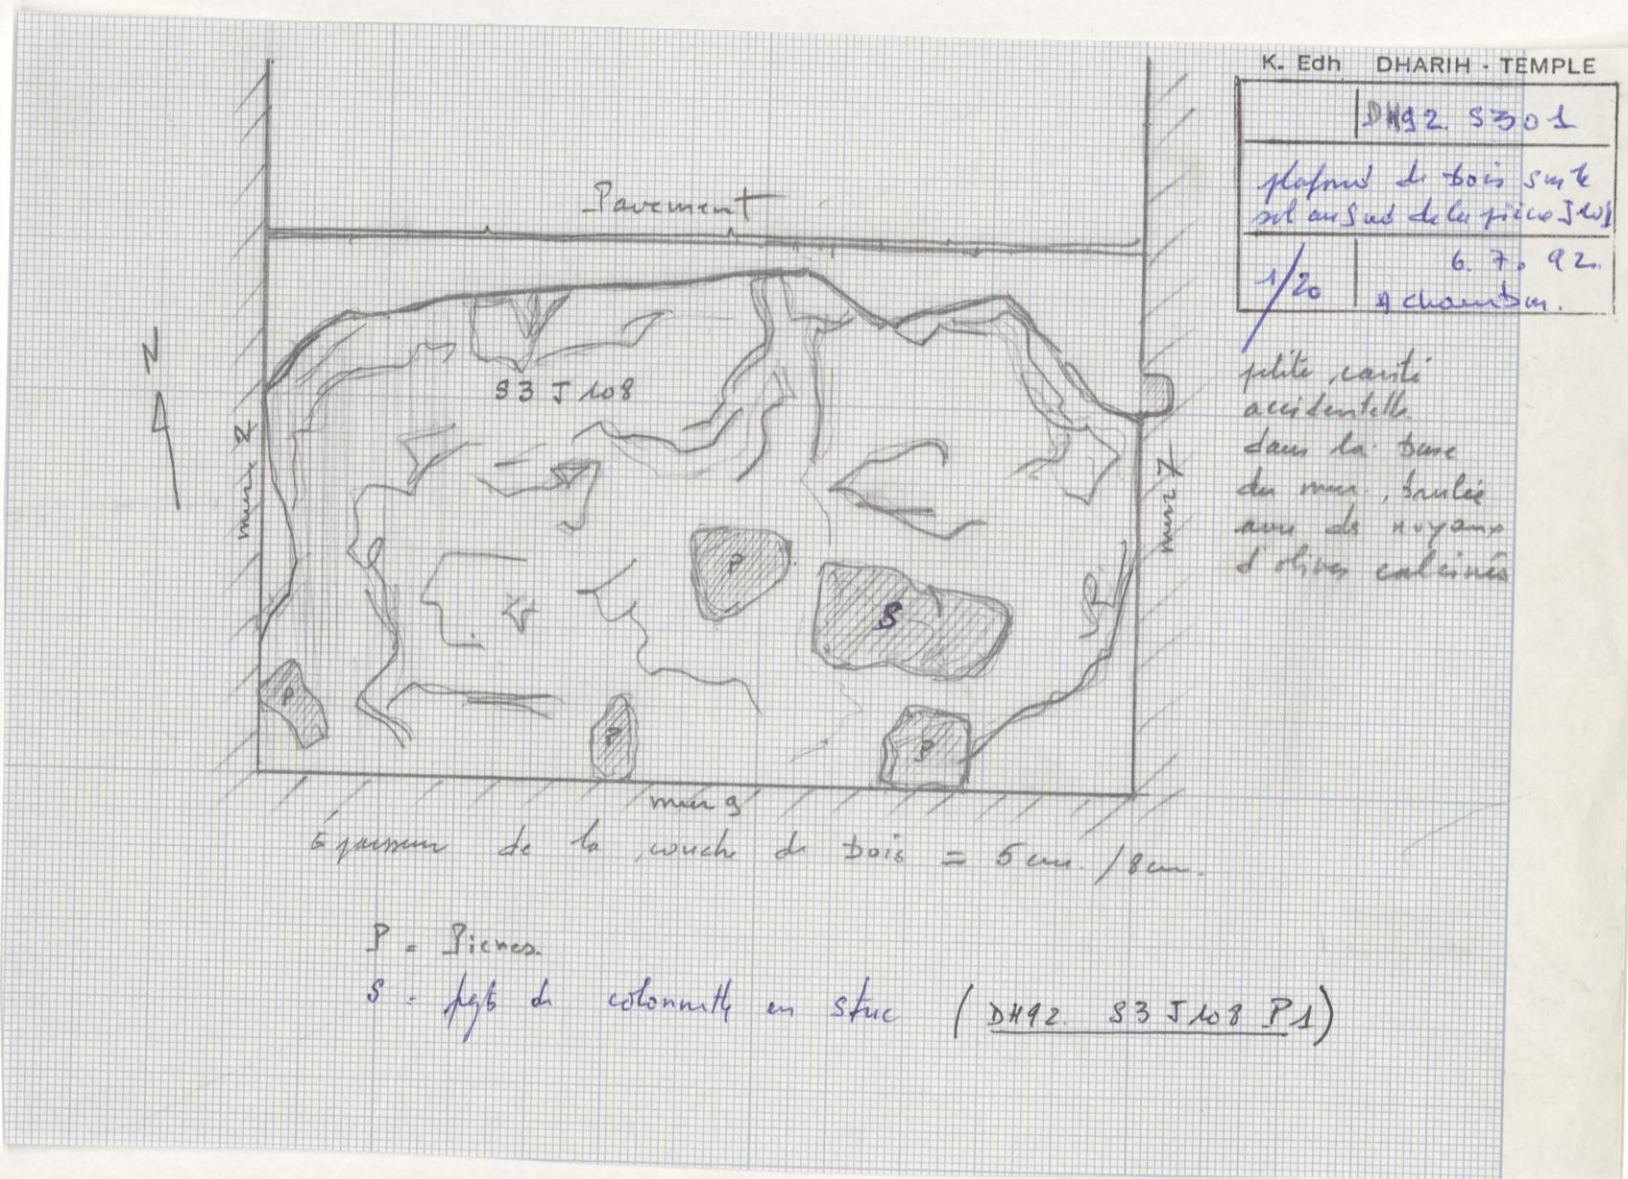 K. Edh DHARIH - TEMPLE
DH92. S301
plafond de bois sur le
sol au Sud de la pièce
1/20
6. 7. 92.
petite cavité
accidentelle
dans la base
du mur, brulée
avec des noyaux
d'olives calcinés
Pavement
N
S3 J108
mur 2
mur 7
P
S
P
P
P
mur 9
Épaisseur de la couche de bois = 5 cm. / 8 cm.
P = Pierres.
S = fgt de colonnette en stuc (DH92. S3 J108 P1)